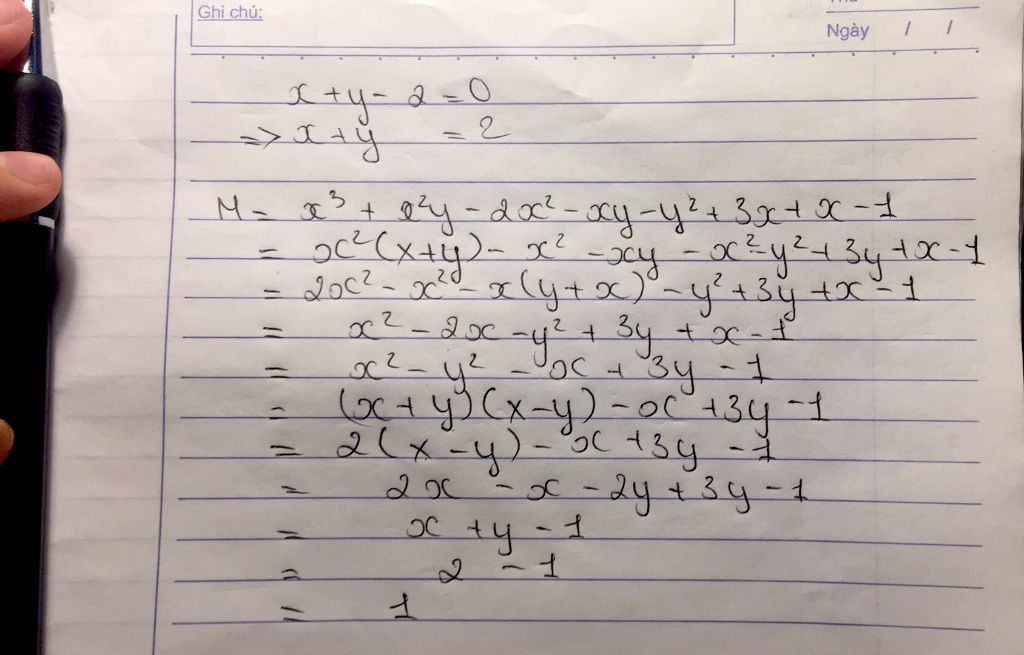 Ghi chú:
Ngày / /
x + y - 2 = 0
=> x + y = 2
M = x³ + x²y - 2x² - xy - y² + 3x + x - 1
= x²(x+y) - x² - xy - x² - y² + 3y + x - 1
= 2x² - x² - x(y+x) - y² + 3y + x - 1
= x² - 2x - y² + 3y + x - 1
= x² - y² - x + 3y - 1
= (x+y)(x-y) - x + 3y - 1
= 2(x-y) - x + 3y - 1
= 2x - x - 2y + 3y - 1
= x + y - 1
= 2 - 1
= 1